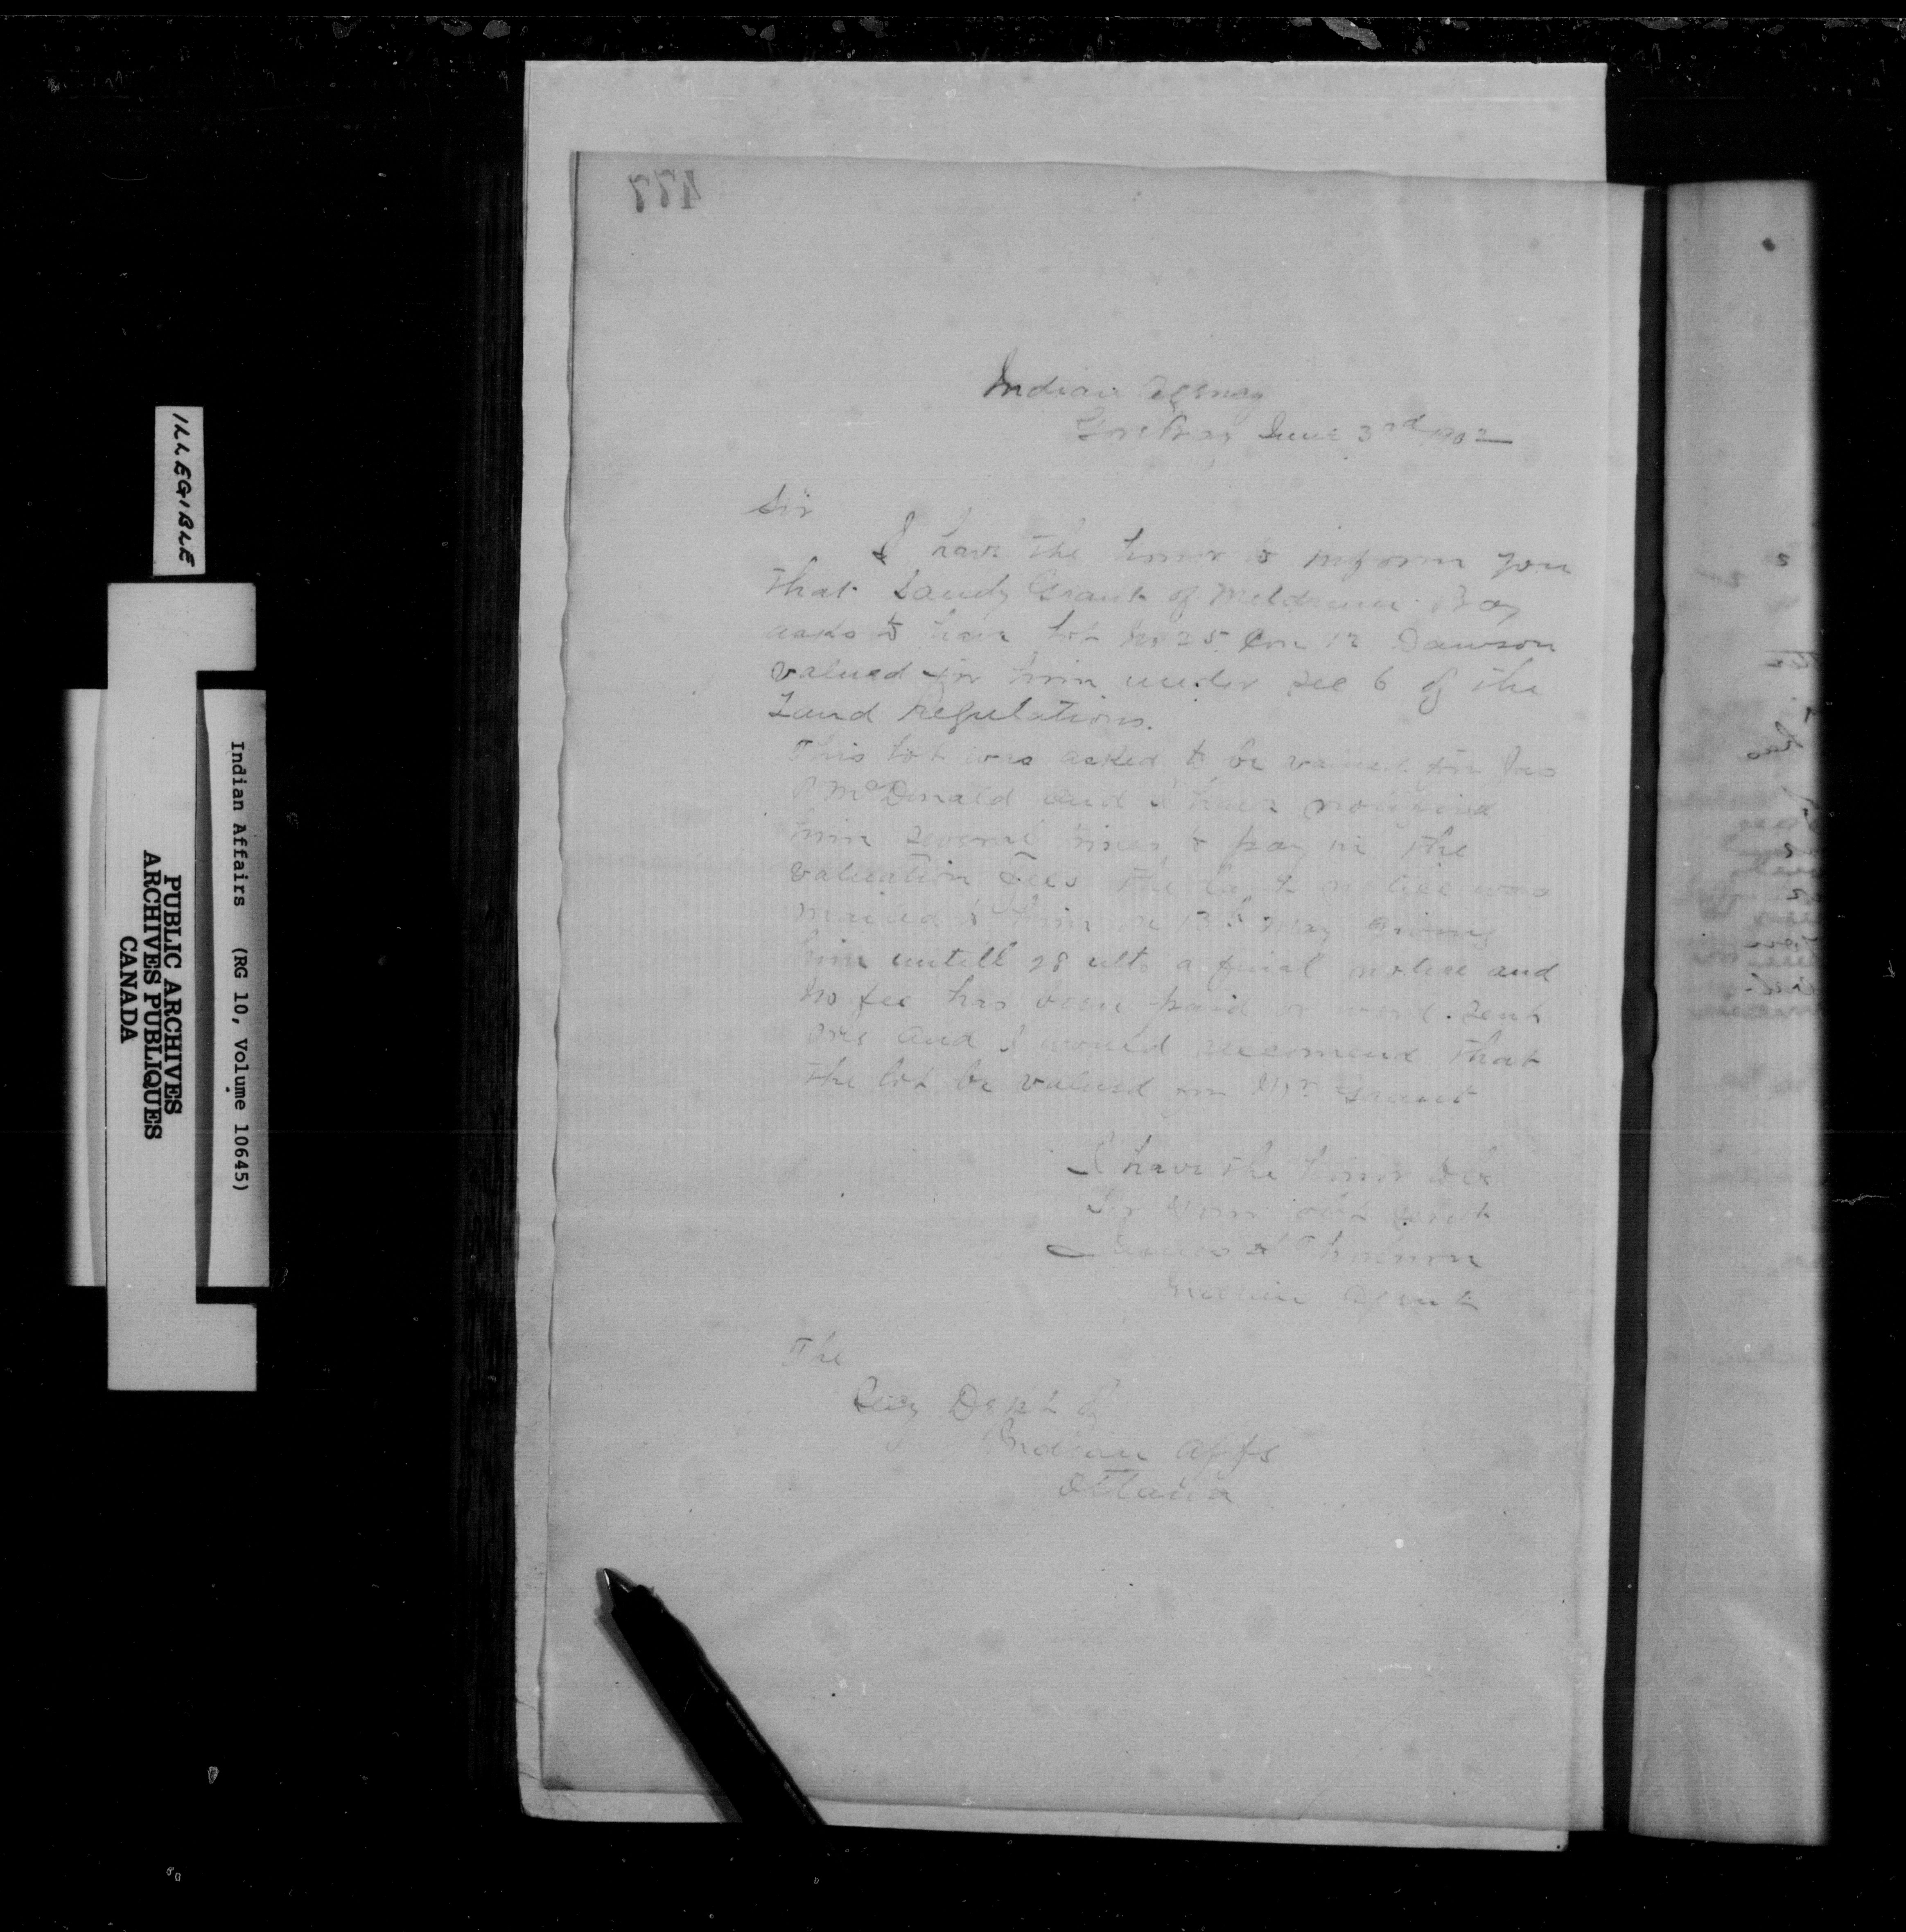 477
Indian Agency
Gore Bay June 3rd 1902
Sir
I have the honor to inform you
that Sandy Grant of Meldrum Bay
asks to have lot No 25 Con 12 Dawson
valued for him under Sec 6 of the
Land Regulations.
This lot was asked to be valued for Jas
McDonald and I have notified
him several times to pay in the
valuation fees the last notice was
mailed to him on 13th May giving
him untill 28 ulto a final notice and
no fee has been paid or word sent
me and I would reccomend that
the lot be valued for Mr Grant
I have the honor to be
Sir Your obt servt
Indian Agent
The
Secy Dept of
Indian Affs
Ottawa
ILLEGIBLE
Indian Affairs (RG 10, Volume 10645)
PUBLIC ARCHIVES
ARCHIVES PUBLIQUES
CANADA